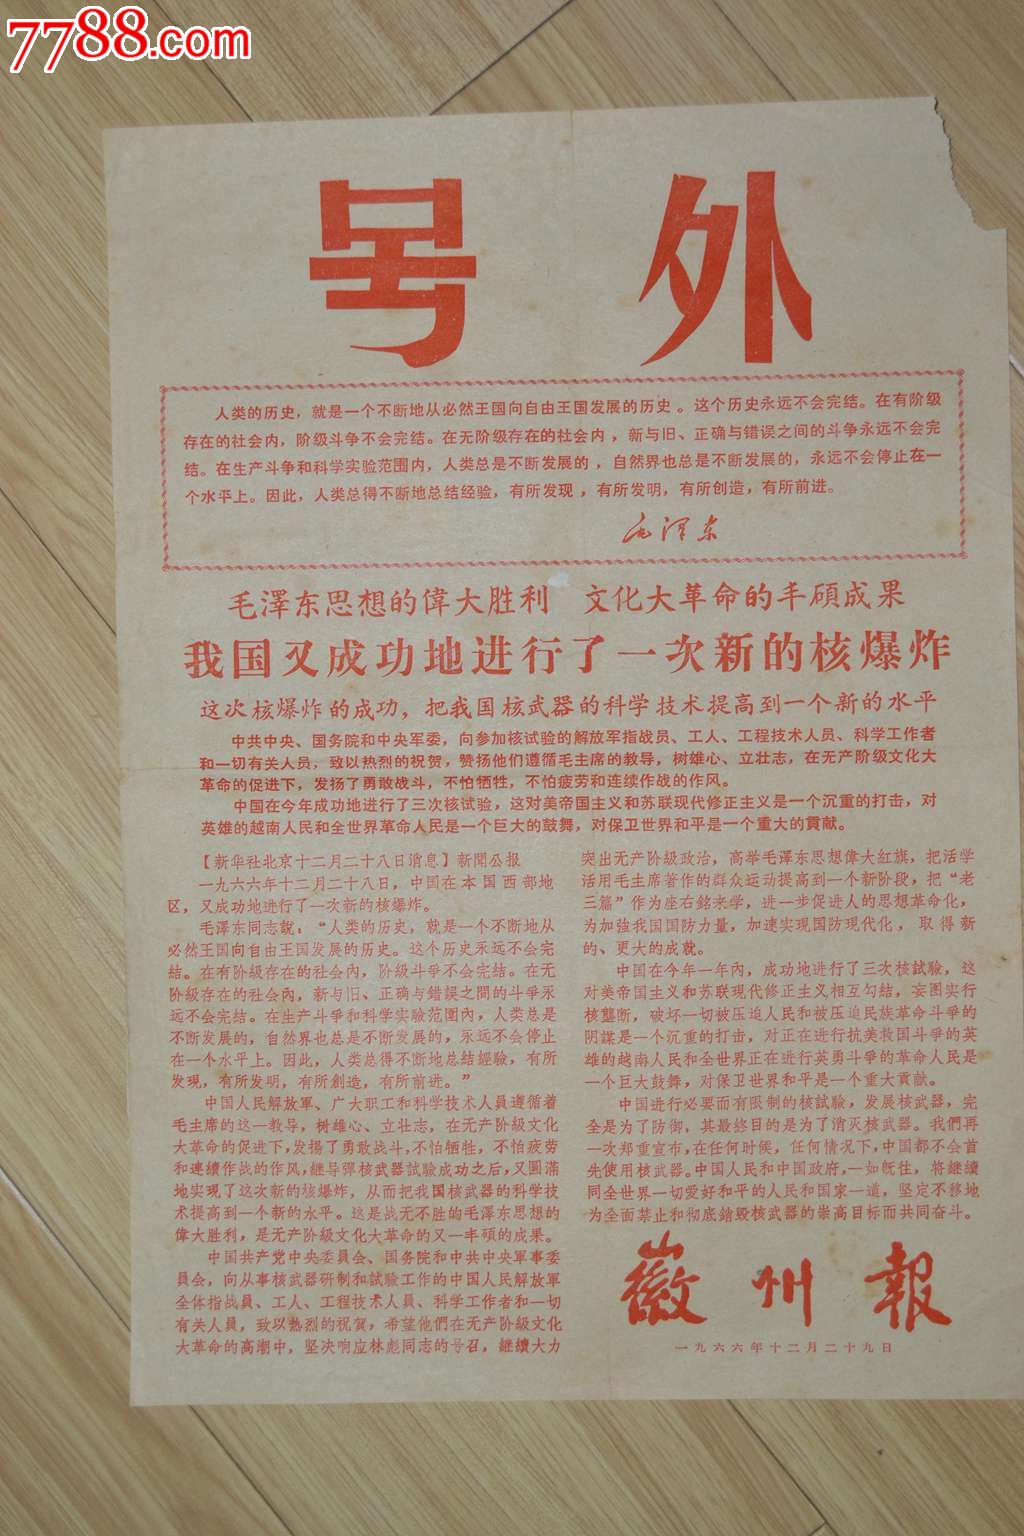 7788.com
号外
人类的历史，就是一个不断地从必然王国向自由王国发展的历史。这个历史永远不会完结。在有阶级
存在的社会内，阶级斗争不会完结。在无阶级存在的社会内，新与旧、正确与错误之间的斗争永远不会完
结。在生产斗争和科学实验范围内，人类总是不断发展的，自然界也总是不断发展的，永远不会停止在一
个水平上。因此，人类总得不断地总结经验，有所发现，有所发明，有所创造，有所前进。
毛泽东
毛澤东思想的偉大胜利　文化大革命的丰碩成果
我国又成功地进行了一次新的核爆炸
这次核爆炸的成功，把我国核武器的科学技术提高到一个新的水平
中共中央、国务院和中央军委，向参加核试验的解放军指战员、工人、工程技术人员、科学工作者
和一切有关人员，致以热烈的祝贺，赞扬他们遵循毛主席的教导，树雄心、立壮志，在无产阶级文化大
革命的促进下，发扬了勇敢战斗，不怕牺牲，不怕疲劳和连续作战的作风。
中国在今年成功地进行了三次核试验，这对美帝国主义和苏联现代修正主义是一个沉重的打击，对
英雄的越南人民和全世界革命人民是一个巨大的鼓舞，对保卫世界和平是一个重大的貢献。
【新华社北京十二月二十八日消息】新聞公报
一九六六年十二月二十八日，中国在本国西部地
区，又成功地进行了一次新的核爆炸。
毛澤东同志說：“人类的历史，就是一个不断地从
必然王国向自由王国发展的历史。这个历史永远不会完
结。在有阶级存在的社会內，阶级斗爭不会完结。在无
阶级存在的社会內，新与旧、正确与错誤之間的斗爭永
远不会完结。在生产斗爭和科学实验范围內，人类总是
不断发展的，自然界也总是不断发展的，永远不会停止
在一个水平上。因此，人类总得不断地总结經驗，有所
发现，有所发明，有所創造，有所前进。”
中国人民解放軍、广大职工和科学技术人員遵循着
毛主席的这一教导，树雄心、立壮志，在无产阶级文化
大革命的促进下，发揚了勇敢战斗，不怕牺牲，不怕疲劳
和連續作战的作风，継导弹核武器試驗成功之后，又圓滿
地实现了这次新的核爆炸，从而把我国核武器的科学技
术提高到一个新的水平。这是战无不胜的毛澤东思想的
偉大胜利，是无产阶级文化大革命的又一丰碩的成果。
中国共产党中央委員会、国务院和中共中央軍事委
員会，向从事核武器研制和試驗工作的中国人民解放軍
全体指战員、工人、工程技术人員、科学工作者和一切
有关人員，致以热烈的祝贺，希望他們在无产阶级文化
大革命的高潮中，坚决响应林彪同志的号召，継續大力
突出无产阶级政治，高举毛澤东思想偉大紅旗，把活学
活用毛主席著作的群众运动提高到一个新阶段，把“老
三篇”作为座右銘来学，进一步促进人的思想革命化，
为加強我国国防力量，加速实现国防现代化，取得新
的、更大的成就。
中国在今年一年內，成功地进行了三次核試驗，这
对美帝国主义和苏联现代修正主义相互勾结，妄图实行
核壟断，破坏一切被压迫人民和被压迫民族革命斗爭的
阴謀是一个沉重的打击，对正在进行抗美救国斗爭的英
雄的越南人民和全世界正在进行英勇斗爭的革命人民是
一个巨大鼓舞，对保卫世界和平是一个重大貢献。
中国进行必要而有限制的核試驗，发展核武器，完
全是为了防御，其最終目的是为了消灭核武器。我們再
一次郑重宣布，在任何时候，任何情况下，中国都不会首
先使用核武器。中国人民和中国政府，一如旣往，将継續
同全世界一切爱好和平的人民和国家一道，坚定不移地
为全面禁止和彻底銷毀核武器的崇高目标而共同奋斗。
徽州報
一九六六年十二月二十九日